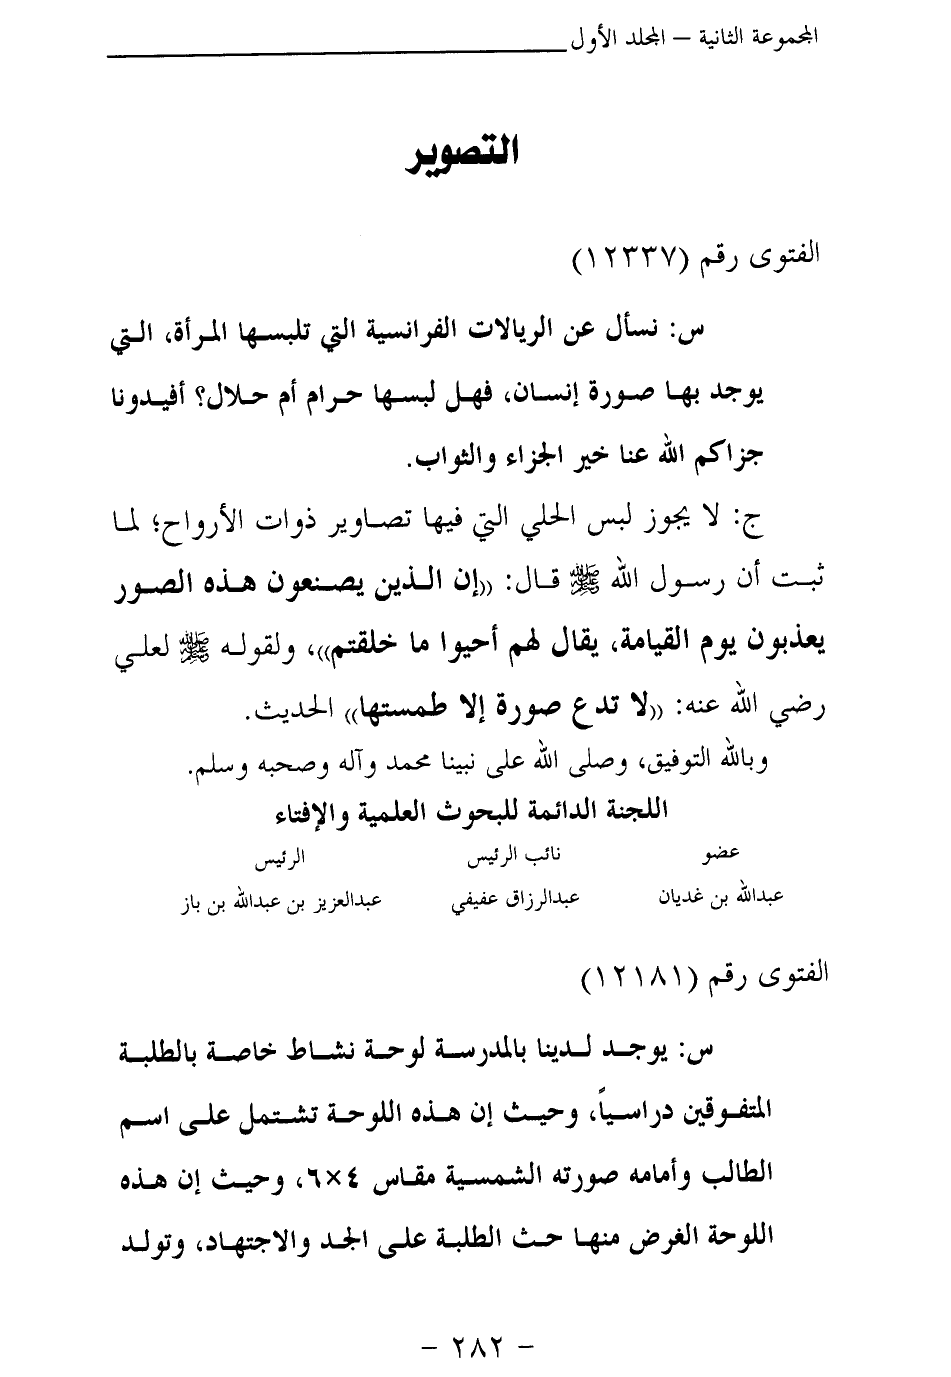 المجموعة الثانية – المجلد الأول
التصوير
الفتوى رقم (١٢٣٣٧)
س: نسأل عن الريالات الفرانسية التي تلبسها المرأة، التي
يوجد بها صورة إنسان، فهل لبسها حرام أم حلال؟ أفيدونا
جزاكم الله عنا خير الجزاء والثواب.
ج: لا يجوز لبس الحلي التي فيها تصاوير ذوات الأرواح؛ لما
ثبت أن رسول الله ﷺ قال: ((إن الذين يصنعون هذه الصور
يعذبون يوم القيامة، يقال لهم أحيوا ما خلقتم))، ولقوله ﷺ لعلي
رضي الله عنه: ((لا تدع صورة إلا طمستها)) الحديث.
وبالله التوفيق، وصلى الله على نبينا محمد وآله وصحبه وسلم.
اللجنة الدائمة للبحوث العلمية والإفتاء
عضو نائب الرئيس الرئيس
عبدالله بن غديان عبدالرزاق عفيفي عبدالعزيز بن عبدالله بن باز
الفتوى رقم (١٢١٨١)
س: يوجد لدينا بالمدرسة لوحة نشاط خاصة بالطلبة
المتفوقين دراسياً، وحيث إن هذه اللوحة تشتمل على اسم
الطالب وأمامه صورته الشمسية مقاس ٤×٦، وحيث إن هذه
اللوحة الغرض منها حث الطلبة على الجد والاجتهاد، وتولد
– ٢٨٢ –